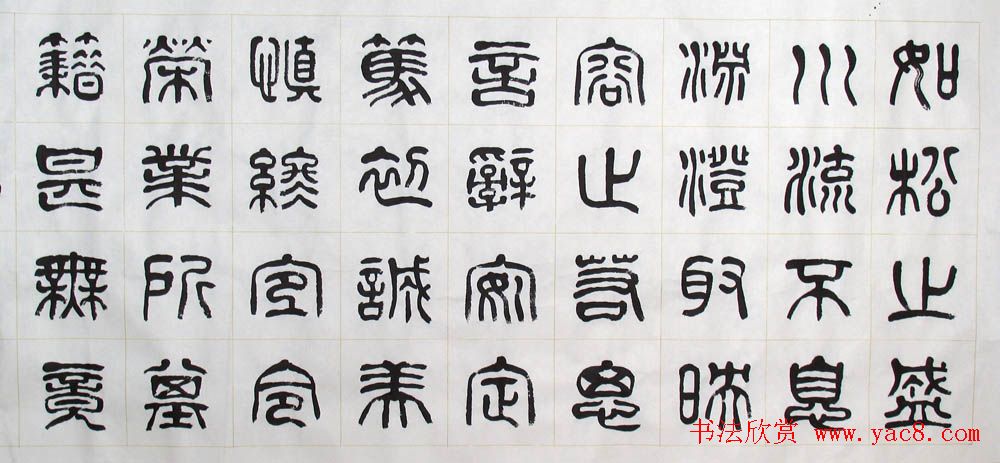 如松之盛
川流不息
淵澄取映
容止若思
言辭安定
篤初誠美
慎終宜令
榮業所基
籍甚無竟
书法欣赏 www.yac8.com